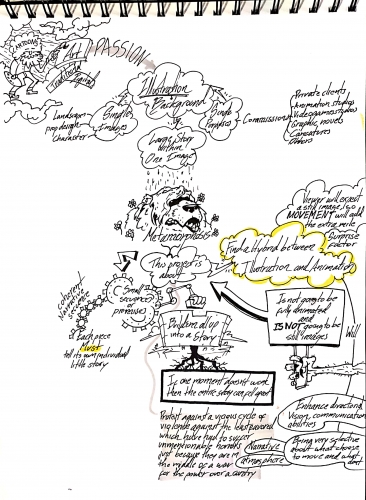 CARTOONS
Art
Traditional
Digital
PASSION
Illustration
Background
Landscape
prop design
Character
Single
Images
Single
Purposes
Commissions
Private clients
Animation studios
Videogame studios
Graphic novels
Caricatures
Others
Large Story
Within
One Image
Metamorphosis
This project is
about
Viewer will expect
a still image, so
MOVEMENT will add
the extra mile
Surprise
factor
Find a Hybrid between
Illustration and Animation
Coherent
Narrative
Small
sequence
Each piece
must
tell its own individual
little story
Evidence
into a Story
Is not going to be
fully animated
and
IS NOT going to be
still images
Will
If one moment doesn't work
then the entire story can fall apart
Protest against a vicious cycle of
violence against the
which have had to suffer
unmentionable horrors
just because they are in
the middle of a war
for the power over a country
Narrative
atmosphere
Enhance directing
Vision, communication
abilities
Being very selective
about what choose
to move and what
don't